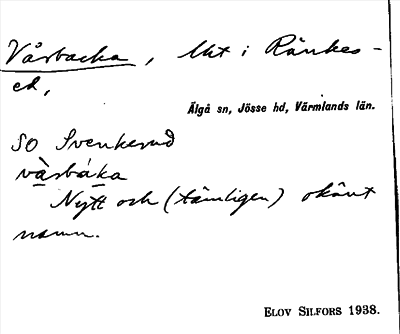 Vårbacka, lht i Ränkes-
ed,
Älgå sn, Jösse hd, Värmlands län.
SO Svenkerud
vàrbáka
Nytt och (tämligen) okänt
namn.
ELOV SILFORS 1938.